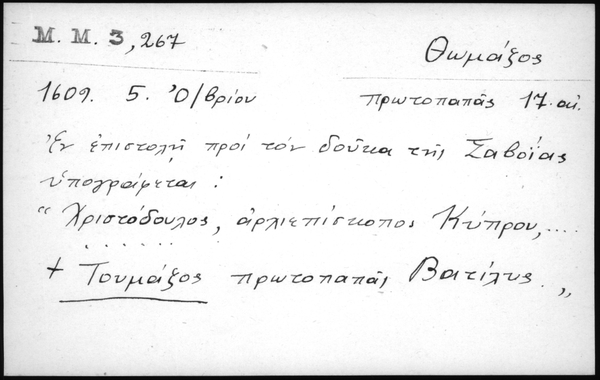 M. M. 3, 267
Θωμάζος
1609. 5. Ὀ/βρίου
πρωτοπαπᾶς 17. αἰ.
Ἐν ἐπιστολῇ πρὸς τὸν δοῦκα τῆς Σαβοΐας
ὑπογράφεται :
“ Χριστόδουλος, ἀρχιεπίσκοπος Κύπρου, ....
. . . . . .
+ Τουμάζος πρωτοπαπᾶς Βατίλης. „